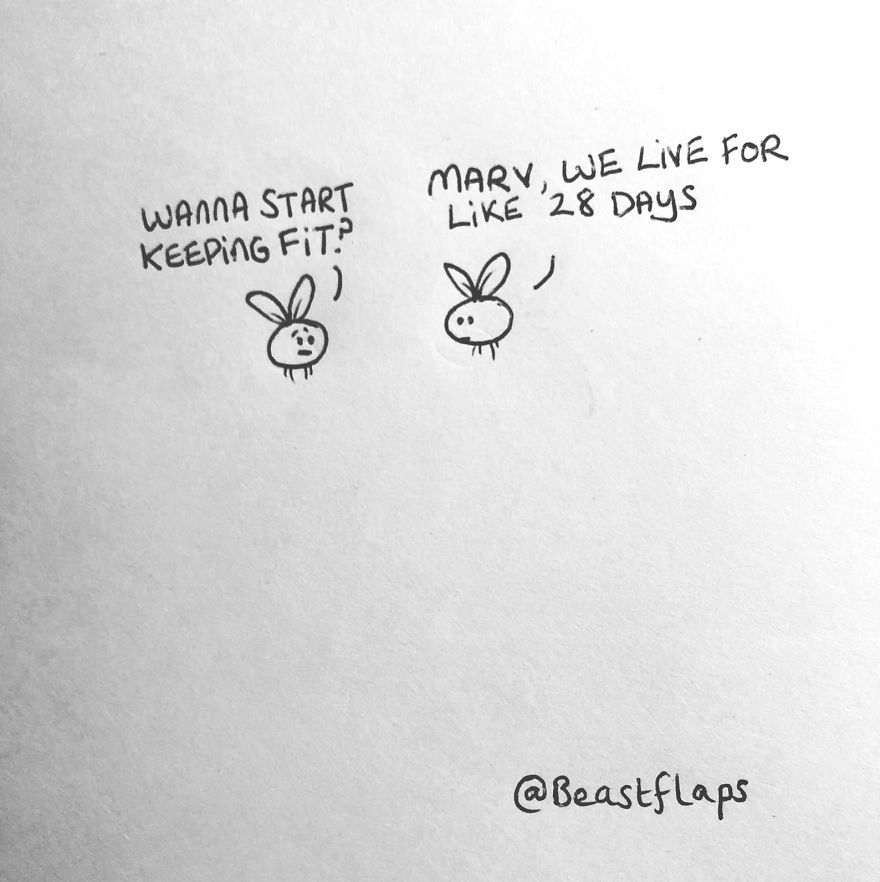 WANNA START
KEEPING FiT?
MARV, WE LiVE FOR
LiKE 28 DAYS
@Beastflaps